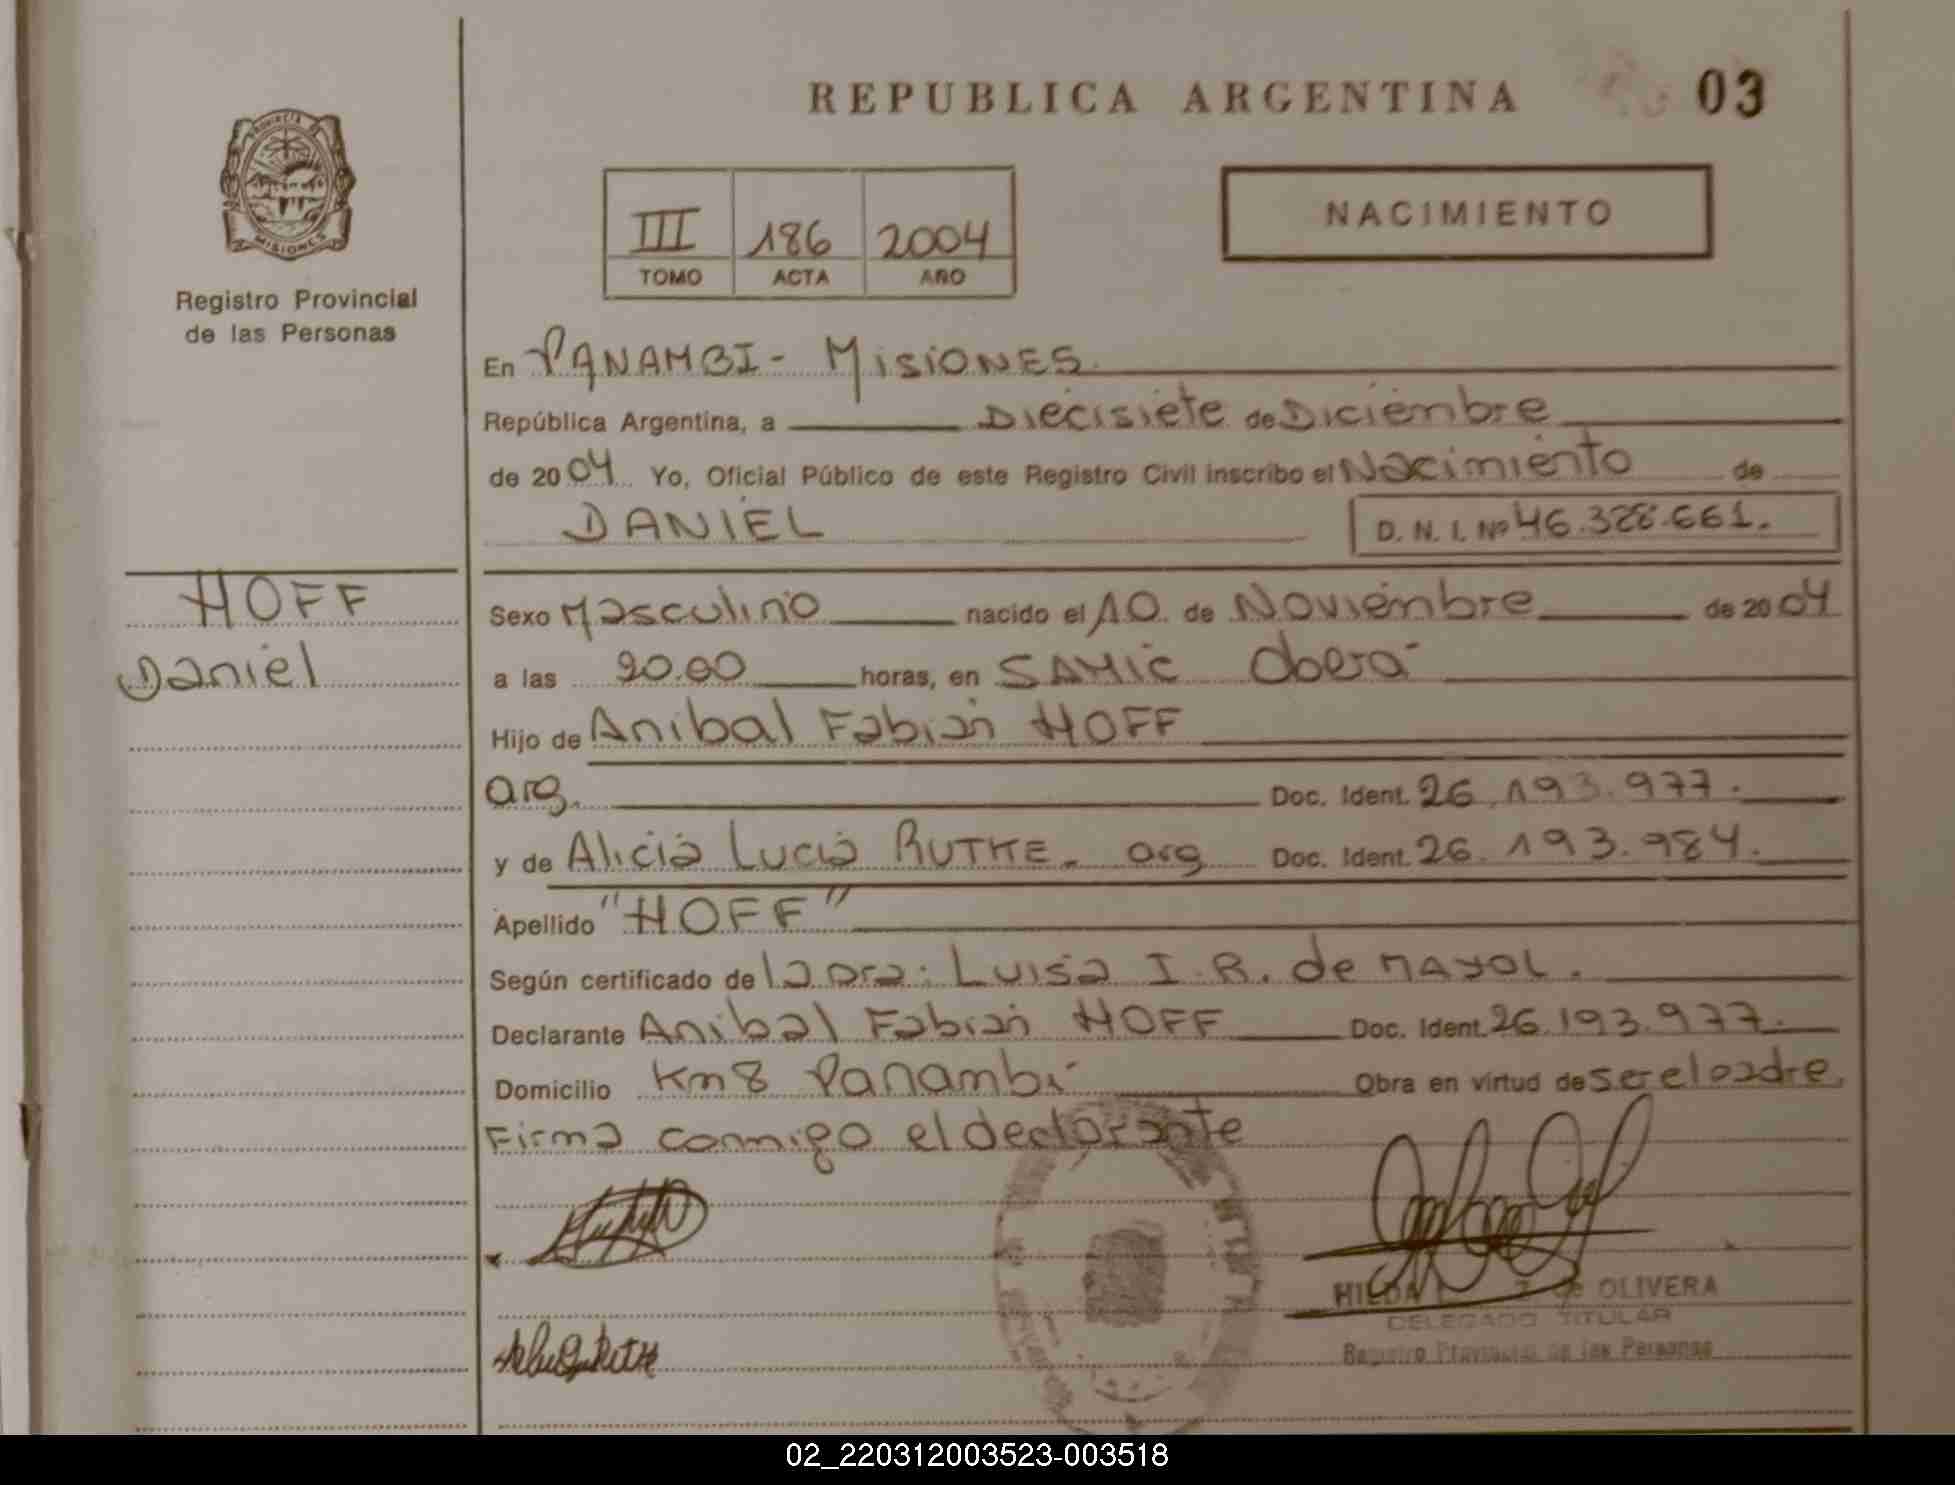 REPUBLICA ARGENTINA 03
PROVINCIA DE
MISIONES
Registro Provincial
de las Personas
III 186 2004
TOMO ACTA AÑO
NACIMIENTO
En PANAMBI - MISIONES
República Argentina, a Diecisiete de Diciembre
de 2004 Yo, Oficial Público de este Registro Civil inscribo el Nacimiento de
DANIEL D. N. I. Nº 46.328.661.
HOFF
Daniel
Sexo Masculino nacido el 10 de Noviembre de 2004
a las 20.00 horas, en SAMIC Oberá
Hijo de Anibal Fabián HOFF
arg. Doc. Ident. 26.193.977.
y de Alicia Lucia RUTKE. arg Doc. Ident. 26.193.984.
Apellido "HOFF"
Según certificado de la Dra. Luisa I. R. de MAYOL.
Declarante Anibal Fabián HOFF Doc. Ident. 26.193.977.
Domicilio Km 8 Panambí Obra en virtud de ser el padre
Firma conmigo el declarante
HILDA Z de OLIVERA
DELEGADO TITULAR
Registro Provincial de las Personas
02_220312003523-003518